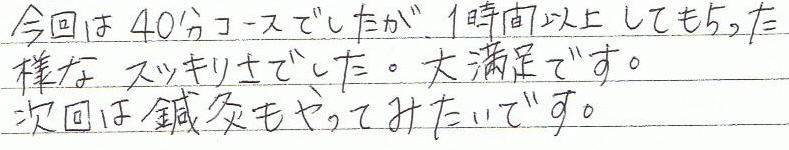 今回は40分コースでしたが、1時間以上してもらった
様なスッキリさでした。大満足です。
次回は鍼灸もやってみたいです。